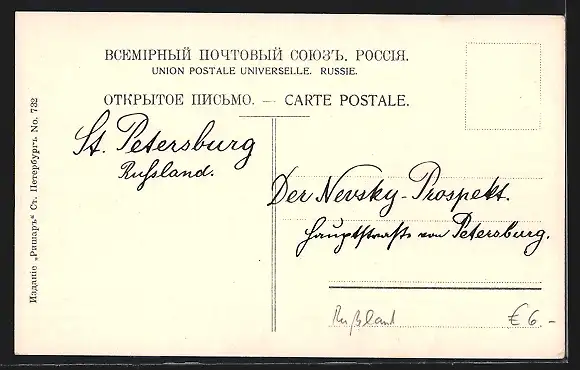 ВСЕМІРНЫЙ ПОЧТОВЫЙ СОЮЗЪ. РОССІЯ.
UNION POSTALE UNIVERSELLE. RUSSIE.
ОТКРЫТОЕ ПИСЬМО. — CARTE POSTALE.
St. Petersburg
Russland.
Der Nevsky-Prospekt.
Hauptstraße von Petersburg.
Rußland € 6.-
Изданіе „Ришаръ“ Ст. Петербургъ No. 732